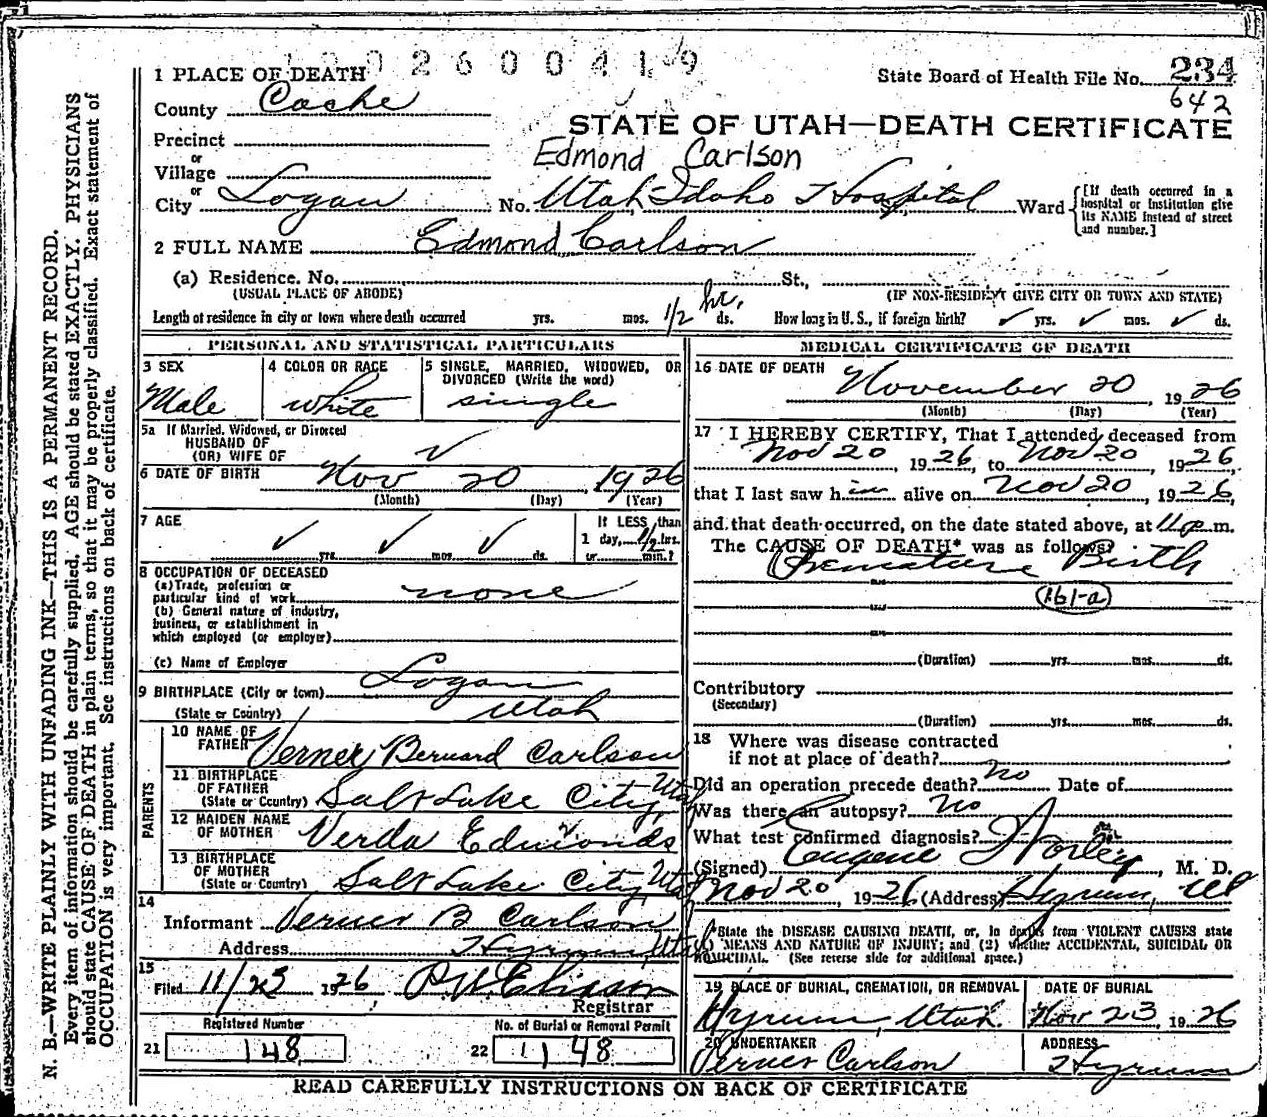 1 9 2 6 0 0 4 1 9
1 PLACE OF DEATH
State Board of Health File No. 234
County Cache
642
STATE OF UTAH—DEATH CERTIFICATE
Precinct
Edmond Carlson
or
Village
or
City Logan No. Utah-Idaho Hospital Ward
[If death occurred in a hospital or institution give its NAME instead of street and number.]
2 FULL NAME Edmond Carlson
(a) Residence. No. St.,
(USUAL PLACE OF ABODE) (IF NON-RESIDENT GIVE CITY OR TOWN AND STATE)
Length of residence in city or town where death occurred yrs. mos. 1/2 hr. ds. How long in U. S., if foreign birth? ✓ yrs. ✓ mos. ✓ ds.
PERSONAL AND STATISTICAL PARTICULARS
3 SEX
Male
4 COLOR OR RACE
white
5 SINGLE, MARRIED, WIDOWED, OR DIVORCED (Write the word)
single
5a If Married, Widowed, or Divorced
HUSBAND OF
(OR) WIFE OF ✓
6 DATE OF BIRTH Nov 20 1926
(Month) (Day) (Year)
7 AGE
✓ yrs. ✓ mos. ✓ ds.
If LESS than
1 day, 1/2 hrs.
or min.?
8 OCCUPATION OF DECEASED
(a) Trade, profession or
particular kind of work none
(b) General nature of industry,
business, or establishment in
which employed (or employer)
(c) Name of Employer
9 BIRTHPLACE (City or town) Logan
(State or Country) Utah
PARENTS
10 NAME OF FATHER Verner Bernard Carlson
11 BIRTHPLACE OF FATHER
(State or Country) Salt Lake City, Utah
12 MAIDEN NAME OF MOTHER Verda Edmonds
13 BIRTHPLACE OF MOTHER
(State or Country) Salt Lake City, Utah
14
Informant Verner B Carlson
Address Hyrum, Utah
15
Filed 11/23 1926
Registrar
Registered Number
21 148
No. of Burial or Removal Permit
22 1148
MEDICAL CERTIFICATE OF DEATH
16 DATE OF DEATH
November 20, 1926
(Month) (Day) (Year)
17 I HEREBY CERTIFY, That I attended deceased from
Nov 20 1926, to Nov 20 1926,
that I last saw him alive on Nov 20, 1926,
and that death occurred, on the date stated above, at 11 p.m.
The CAUSE OF DEATH* was as follows:
Premature Birth
161-a
(Duration) yrs. mos. ds.
Contributory
(Secondary)
(Duration) yrs. mos. ds.
18 Where was disease contracted
if not at place of death?
Did an operation precede death? no Date of
Was there an autopsy? no
What test confirmed diagnosis?
(Signed) Eugene Worley, M. D.
Nov 20, 1926 (Address) Hyrum, Ut
*State the DISEASE CAUSING DEATH, or, in deaths from VIOLENT CAUSES state
(1) MEANS AND NATURE OF INJURY; and (2) whether ACCIDENTAL, SUICIDAL OR
HOMICIDAL. (See reverse side for additional space.)
19 PLACE OF BURIAL, CREMATION, OR REMOVAL
Hyrum, Utah.
DATE OF BURIAL
Nov 23, 1926
20 UNDERTAKER
Verner Carlson
ADDRESS
Hyrum
READ CAREFULLY INSTRUCTIONS ON BACK OF CERTIFICATE
N. B.—WRITE PLAINLY WITH UNFADING INK—THIS IS A PERMANENT RECORD.
Every item of information should be carefully supplied. AGE should be stated EXACTLY. PHYSICIANS
should state CAUSE OF DEATH in plain terms, so that it may be properly classified. Exact statement of
OCCUPATION is very important. See instructions on back of certificate.